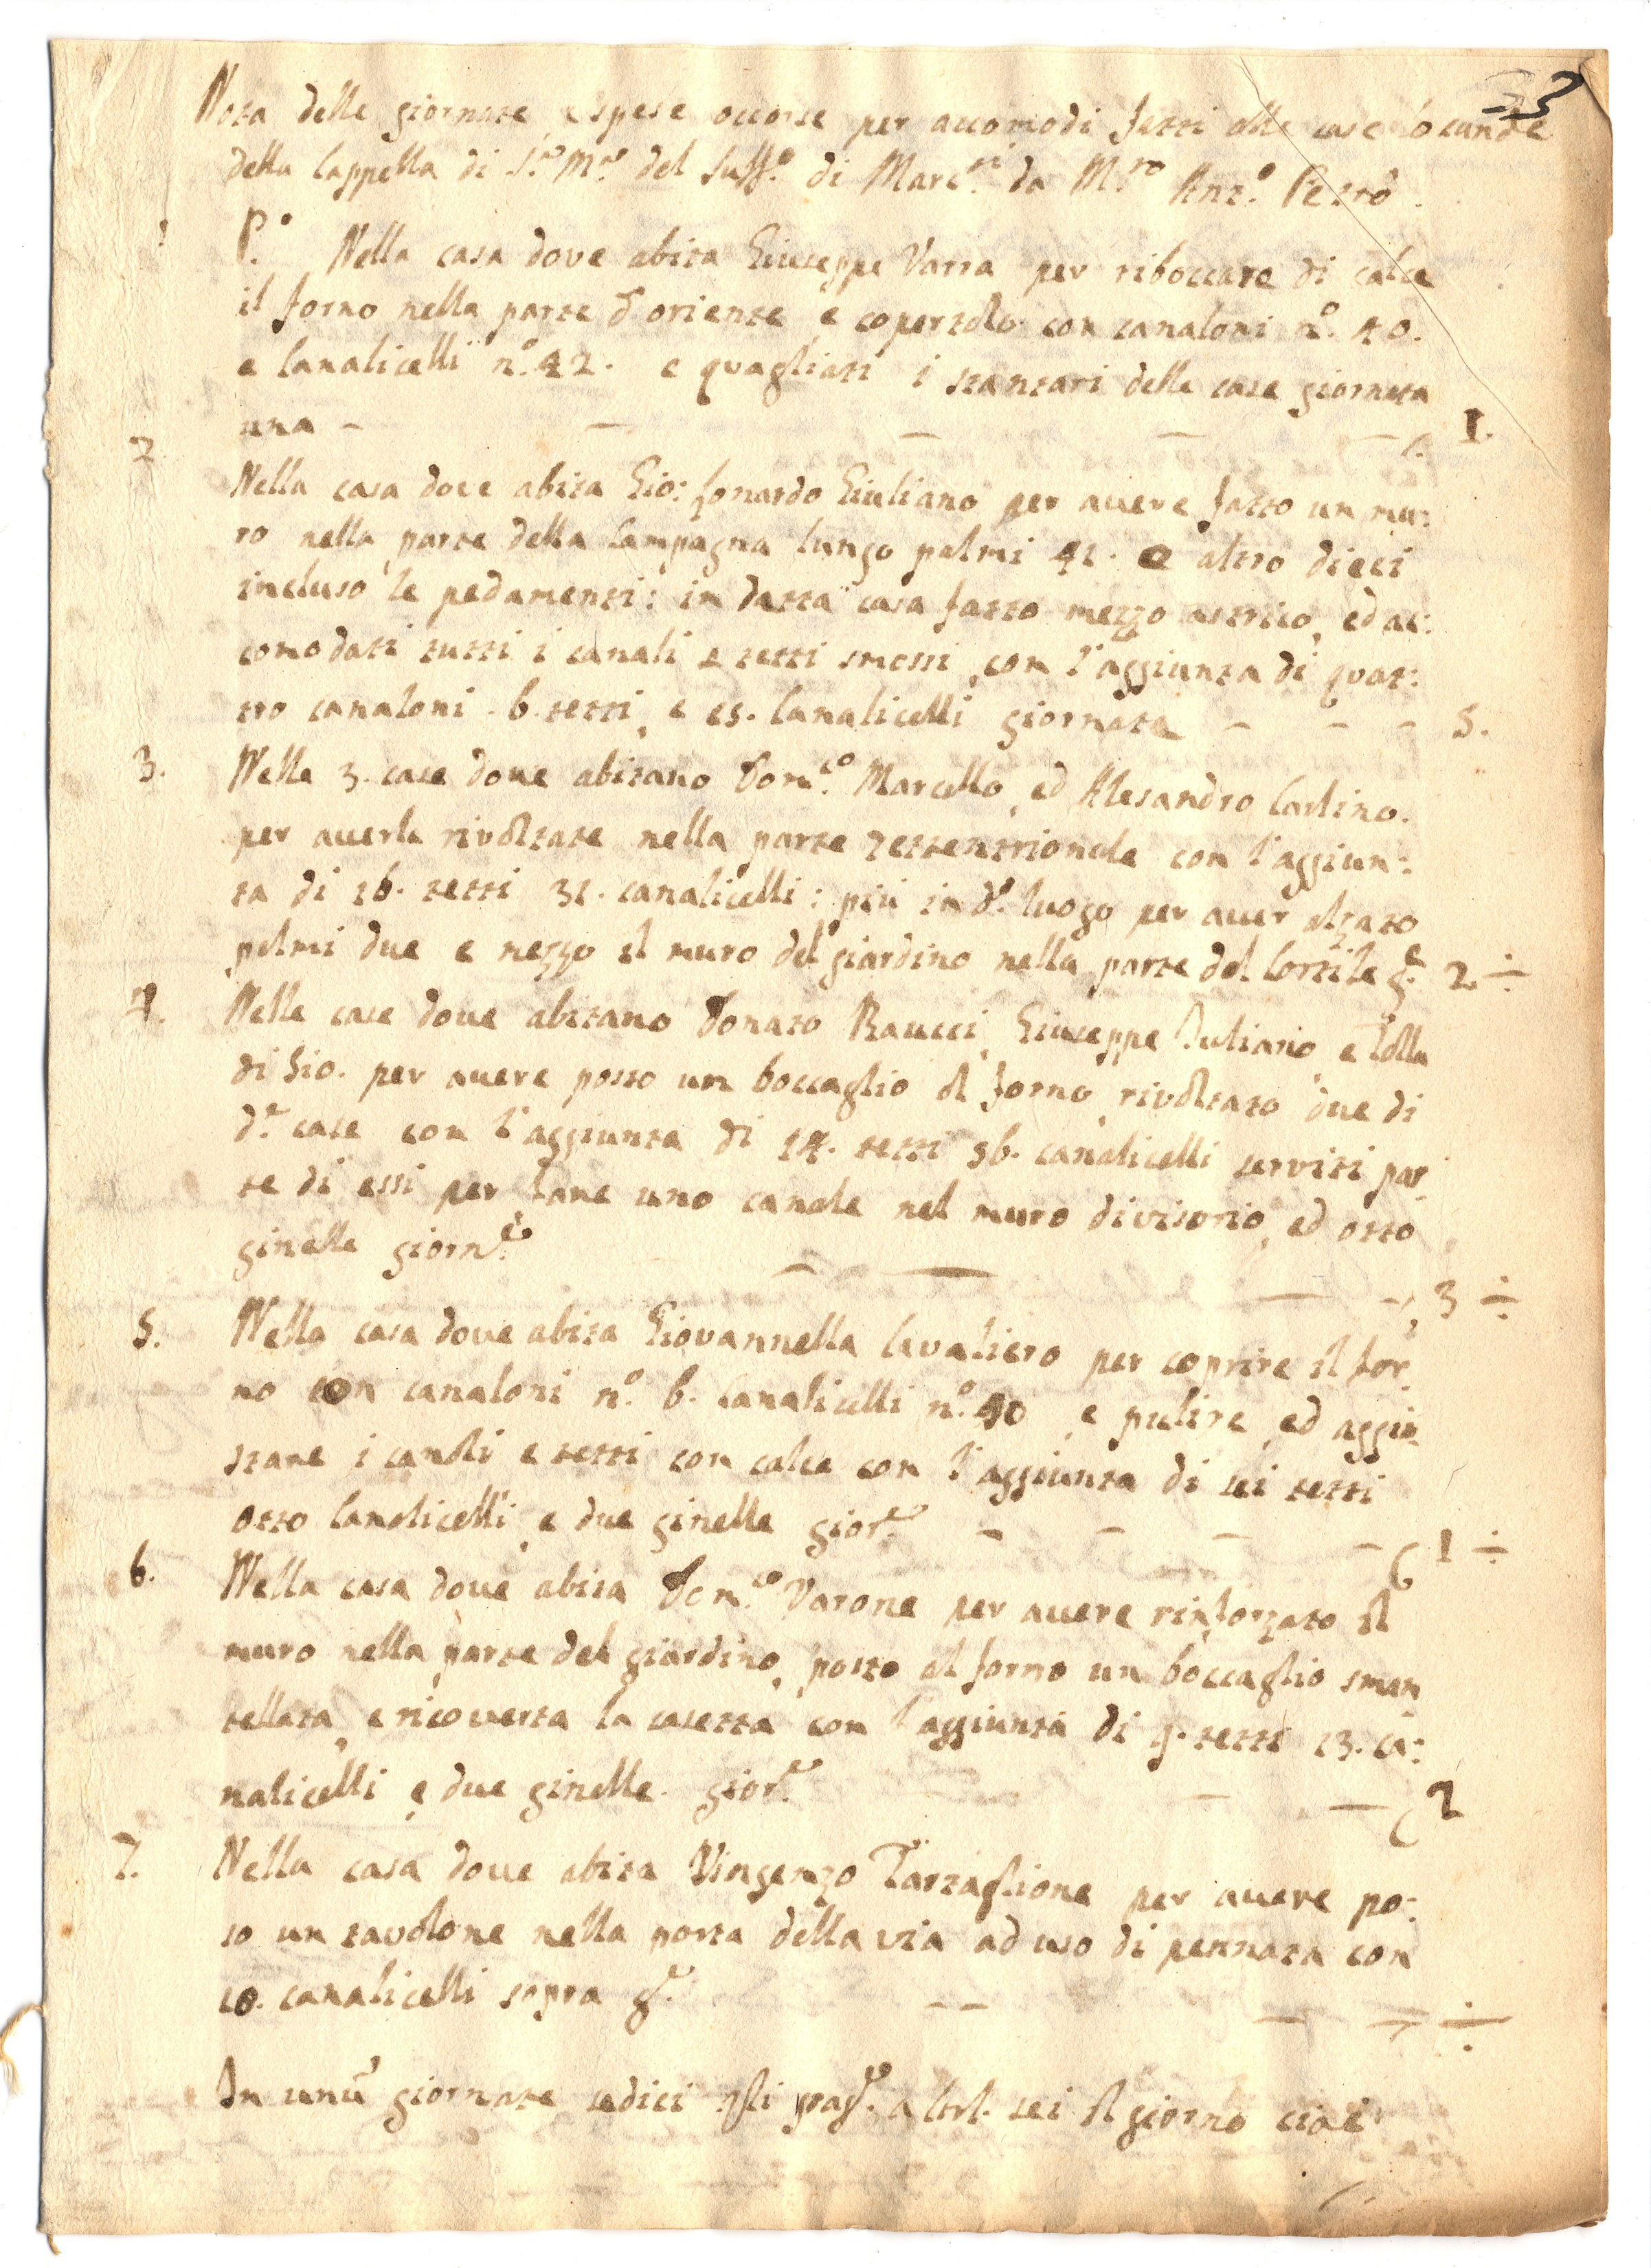 23
Nota delle giornate, e spese occorse per accomodi fatti alle case locande
della Cappella di S.ta M.a del Suff.o di Marc.ni da M.ro Ant.o Petrò.
1 P.o Nella casa dove abita Giuseppe Varra per riboccare di calce
il forno nella parte d'oriente, e copertolo con canaloni n.o 40.
e Canalicelli n.o 42. e quagliati i stantari delle case giornata
una - - - - - 1.
2 Nella casa dove abita Gio: Lonardo Giuliano per avere fatto un mu:
ro nella parte della Campagna lungo palmi 41. e altro dieci
incluso le pedamenti: in detta casa fatto mezzo astrico, ed ac:
comodati tutti i canali e tetti smossi, con l'aggiunta di quat:
tro canaloni. 6. tetti, e 15. Canalicelli giornate - - - 5.
3. Nelle 3. case dove abitano Dom.co Marcello, ed Alesandro Carlino.
per averle rivoltate nella parte settentrionale con l'aggiun:
ta di 16. tetti 31. canalicelli: più in d.o luogo per aver alzato
palmi due e mezzo il muro del giardino nella parte del Cortile g.e 2 ÷
4. Nelle case dove abitano Donato Raucci, Giuseppe Iuliano, e Tolla
di Gio. per avere posto un boccaglio al forno, rivoltato due di
d.e case con l'aggiunta di 14. tetti 36. canalicelli serviti par
te di essi per fare uno canale nel muro divisorio, ed otto
ginelle giorn.te - - - - 3 ÷
5. Nella casa dove abita Giovannella Cavaliero per coprire il for
no con canaloni n.o 6. Canalicelli n.o 40, e pulire, ed aggiu
stare i canali e tetti con calce con l'aggiunta di sei tetti
otto Canalicelli, e due ginelle gior.te - - - - 1 ÷
6. Nella casa dove abita Dom.co Varone per avere rinforzato il
muro nella parte del giardino, posto al forno un boccaglio sman
tellata, e ricoverta la casetta con l'aggiunta di 9. tetti 13. ca:
nalicelli e due ginelle. gior.te - - 2
7. Nella casa dove abita Vingenzo Tartaglione per avere po:
to un tavolone nella porta della via ad uso di pennata con
10. canalicelli sopra g.te - - - - ÷
In unū giornate sedici a Carl. sei il giorno cioè